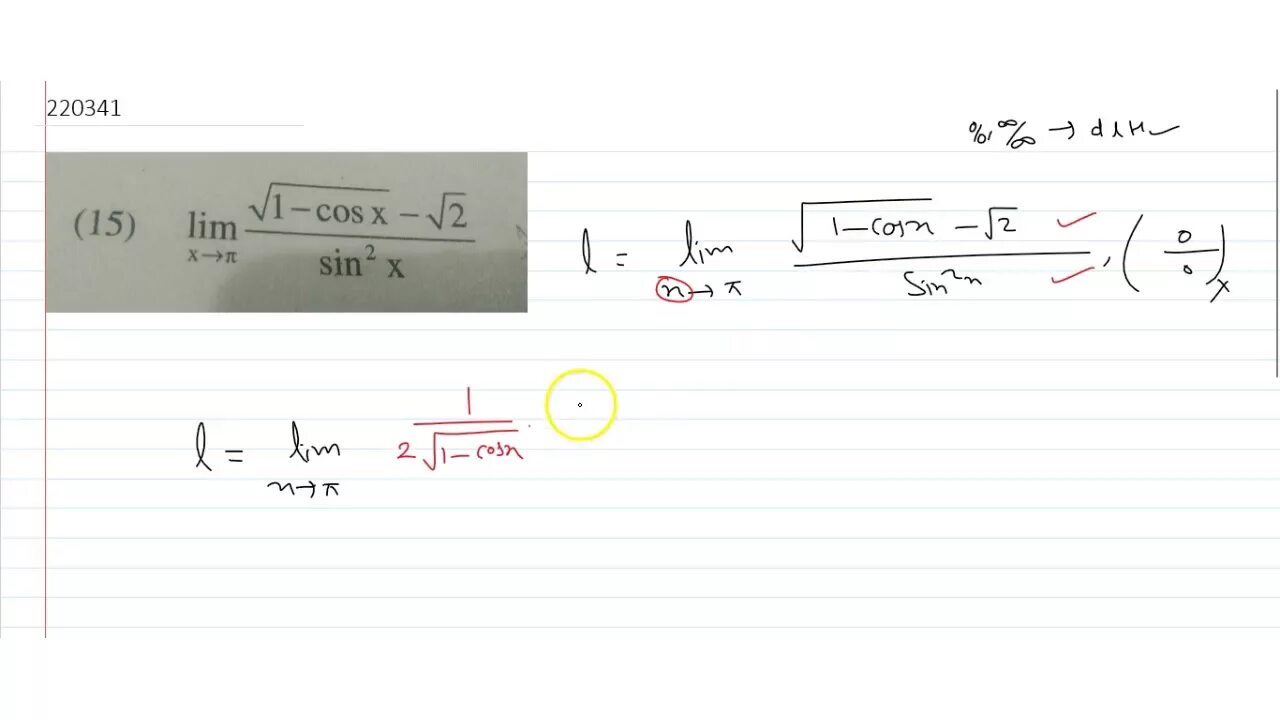 220341
0/0, ∞/∞ → d L H ✓
(15) lim x→π (√(1−cos x) − √2) / (sin² x)
l = lim x→π (√(1−cosx) − √2) / (Sin²x), (0/0)
l = lim x→π 1 / (2√(1−cosx)) ·